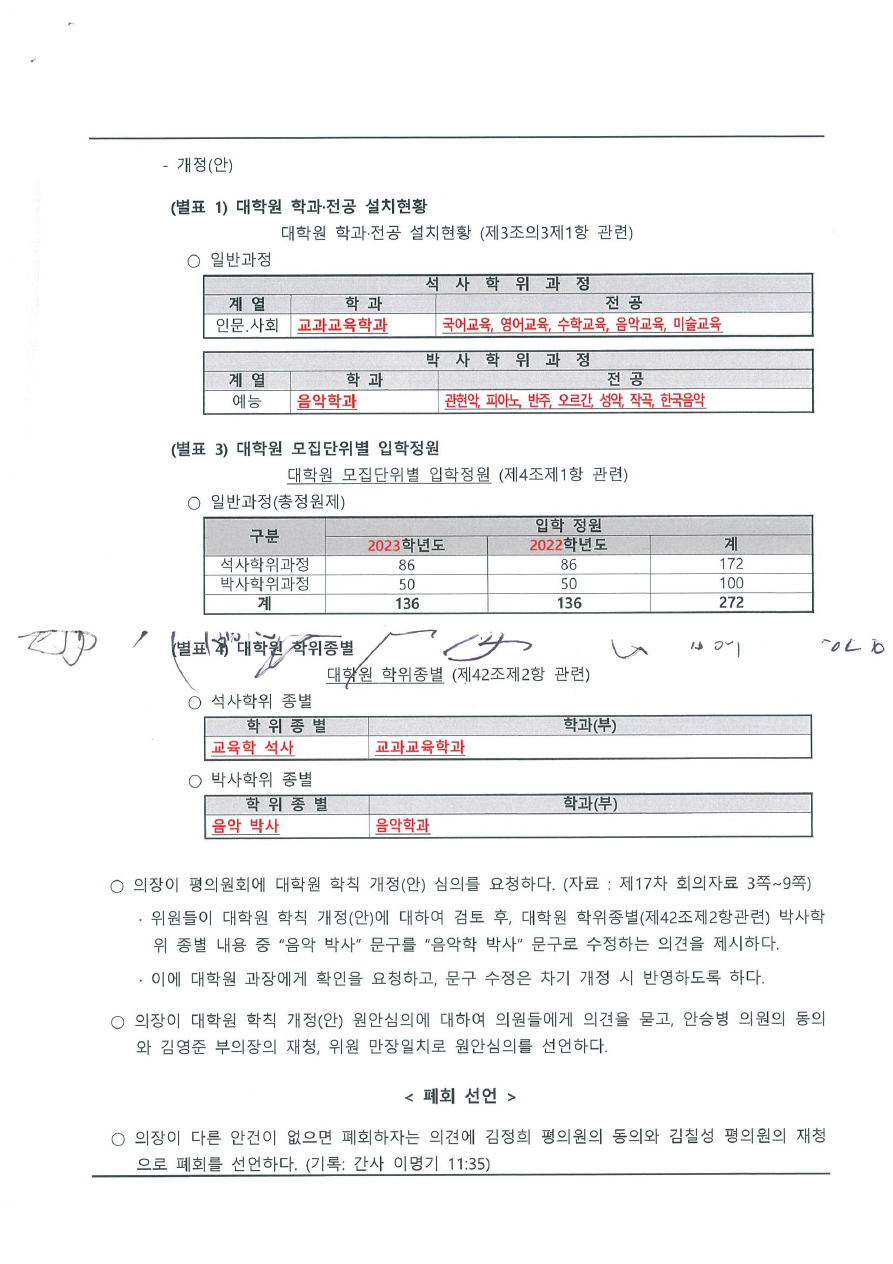 - 개정(안)
(별표 1) 대학원 학과·전공 설치현황
대학원 학과·전공 설치현황 (제3조의3제1항 관련)
○ 일반과정
석 사 학 위 과 정
계 열 학 과 전 공
인문.사회 교과교육학과 국어교육, 영어교육, 수학교육, 음악교육, 미술교육
박 사 학 위 과 정
계 열 학 과 전 공
예능 음악학과 관현악, 피아노, 반주, 오르간, 성악, 작곡, 한국음악
(별표 3) 대학원 모집단위별 입학정원
대학원 모집단위별 입학정원 (제4조제1항 관련)
○ 일반과정(총정원제)
구분 입학 정원
2023학년도 2022학년도 계
석사학위과정 86 86 172
박사학위과정 50 50 100
계 136 136 272
(별표 4) 대학원 학위종별
대학원 학위종별 (제42조제2항 관련)
○ 석사학위 종별
학 위 종 별 학과(부)
교육학 석사 교과교육학과
○ 박사학위 종별
학 위 종 별 학과(부)
음악 박사 음악학과
○ 의장이 평의원회에 대학원 학칙 개정(안) 심의를 요청하다. (자료 : 제17차 회의자료 3쪽~9쪽)
· 위원들이 대학원 학칙 개정(안)에 대하여 검토 후, 대학원 학위종별(제42조제2항관련) 박사학
위 종별 내용 중 “음악 박사” 문구를 “음악학 박사” 문구로 수정하는 의견을 제시하다.
· 이에 대학원 과장에게 확인을 요청하고, 문구 수정은 차기 개정 시 반영하도록 하다.
○ 의장이 대학원 학칙 개정(안) 원안심의에 대하여 의원들에게 의견을 묻고, 안승병 의원의 동의
와 김영준 부의장의 재청, 위원 만장일치로 원안심의를 선언하다.
< 폐회 선언 >
○ 의장이 다른 안건이 없으면 폐회하자는 의견에 김정희 평의원의 동의와 김칠성 평의원의 재청
으로 폐회를 선언하다. (기록: 간사 이명기 11:35)